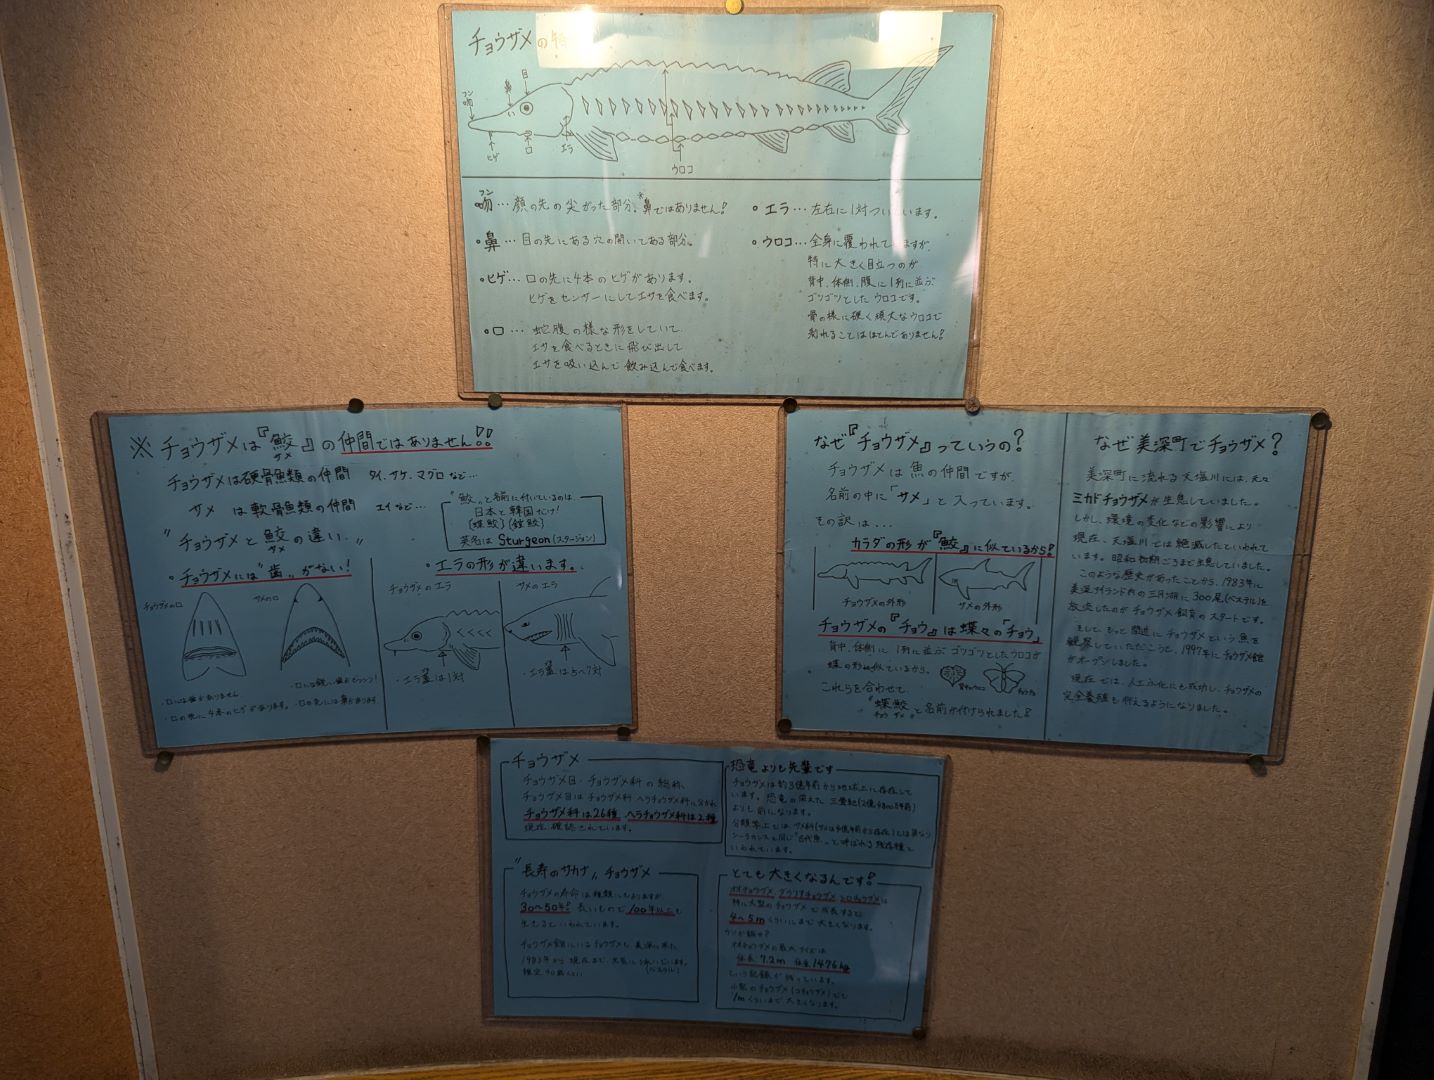 チョウザメの特
目
鼻
フン
吻
ヒゲ
口
エラ
ウロコ
フン
・吻…顔の先の尖がった部分。※鼻ではありません!
・鼻…目の先にある穴の開いてある部分。
・ヒゲ…口の先に4本のヒゲがあります。
ヒゲをセンサーにしてエサを食べます。
・口…蛇腹の様な形をしていて
エサを食べるときに飛び出して
エサを吸い込んで飲み込んで食べます。
・エラ…左右に1対ついています。
・ウロコ…全身に覆われてますが、
特に大きく目立つのが
背中、体側、腹に1列に並ぶ
ゴツゴツとしたウロコです。
骨の様に硬く頑大なウロコで
剥れることはほとんどありません!
※チョウザメは『鮫』の仲間ではありません!!
サメ
チョウザメは硬骨魚類の仲間 タイ、サケ、マグロなど…
サメ は軟骨魚類の仲間 エイなど…
"鮫"と名前に付いているのは、
日本と韓国だけ!
英名は Sturgeon(スタージョン)
"チョウザメと鮫の違い"
サメ
・チョウザメには"歯"がない!
チョウザメの口
サメの口
・口には歯がありません
・口の先に4本のヒゲがあります。
・口の先には鼻があります
・エラの形が違います。
チョウザメのエラ
サメのエラ
・エラ蓋は1対
・エラ蓋は5〜7対
なぜ『チョウザメ』っていうの?
チョウザメは魚の仲間ですが、
名前の中に「サメ」と入っています。
その訳は…
カラダの形が『鮫』に似ているから!
チョウザメの外形
サメの外形
チョウザメの『チョウ』は蝶々の「チョウ」
背中、体側に1列に並ぶゴツゴツとしたウロコが
蝶の形に似ているから。
これらを合わせて、
"蝶鮫"と名前が付けられました!
チョウ ザメ
なぜ美深町でチョウザメ?
美深町に流れる天塩川には、元々
ミカドチョウザメが生息していました。
しかし、環境の変化などの影響により
現在、天塩川では絶滅したといわれて
います。昭和初期ごろまで生息していました。
このような歴史があったことから、1983年に
美深アイランド内の三日月湖に300尾(ベステル)を
放流したのがチョウザメ飼育のスタートです。
そして、もっと間近にチョウザメという魚を
観察していただこうと、1997年にチョウザメ館
がオープンしました。
現在では、人工ふ化にも成功し、チョウザメの
完全養殖も行えるようになりました。
チョウザメ
チョウザメ目・チョウザメ科の総称。
チョウザメ目はチョウザメ科・ヘラチョウザメ科に分かれ
チョウザメ科は26種 ヘラチョウザメ科は2種
現在、確認されています。
恐竜よりも先輩です
チョウザメは約3億年前から地球上に存在して
います。恐竜の栄えた三畳紀
より前になります。
シーラカンスと同じ"古代魚"と呼ばれる残存種と
いわれています。
"長寿のサカナ"チョウザメ
チョウザメの寿命は種類にもよりますが
30〜50年!長いもので100年以上も
生きるといわれています。
チョウザメ館にいるチョウザメも美深に来た
1983年から現在まで、元気に泳いでいます。
(ベステル)
とても大きくなるんです!
オオチョウザメ、ダウリアチョウザメ、シロチョウザメは
特に大型のチョウザメで成長すると
4〜5mくらいにまで大きくなります。
オオチョウザメの最大サイズは
体長7.2m 体重1476kg
という記録が残っています。
小型のチョウザメ(コチョウザメ)でも
1mくらいまで大きくなります。